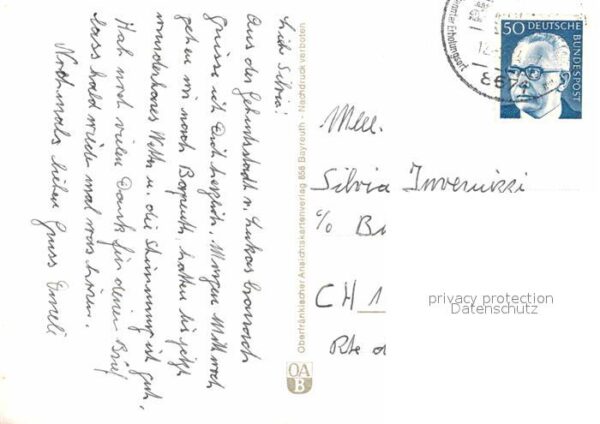 Liebe Silvia!
Aus der Geburtsstadt v. Lukas Cranach
grüsse ich Dich herzlich, Morgen Mittwoch
gehen wir nach Bayreuth, hatten bis jetzt
wunderbares Wetter u. die Stimmung ist gut.
Hab noch vielen Dank für deinen Brief
lass bald wieder mal was hören.
Nochmals lieben Gruss
Oberfränkischer Ansichtskartenverlag 858 Bayreuth - Nachdruck verboten
OA
B
Mlle.
Silvia Invernizzi
c/o
CH 1
Rte d
50 DEUTSCHE
BUNDESPOST
privacy protection
Datenschutz